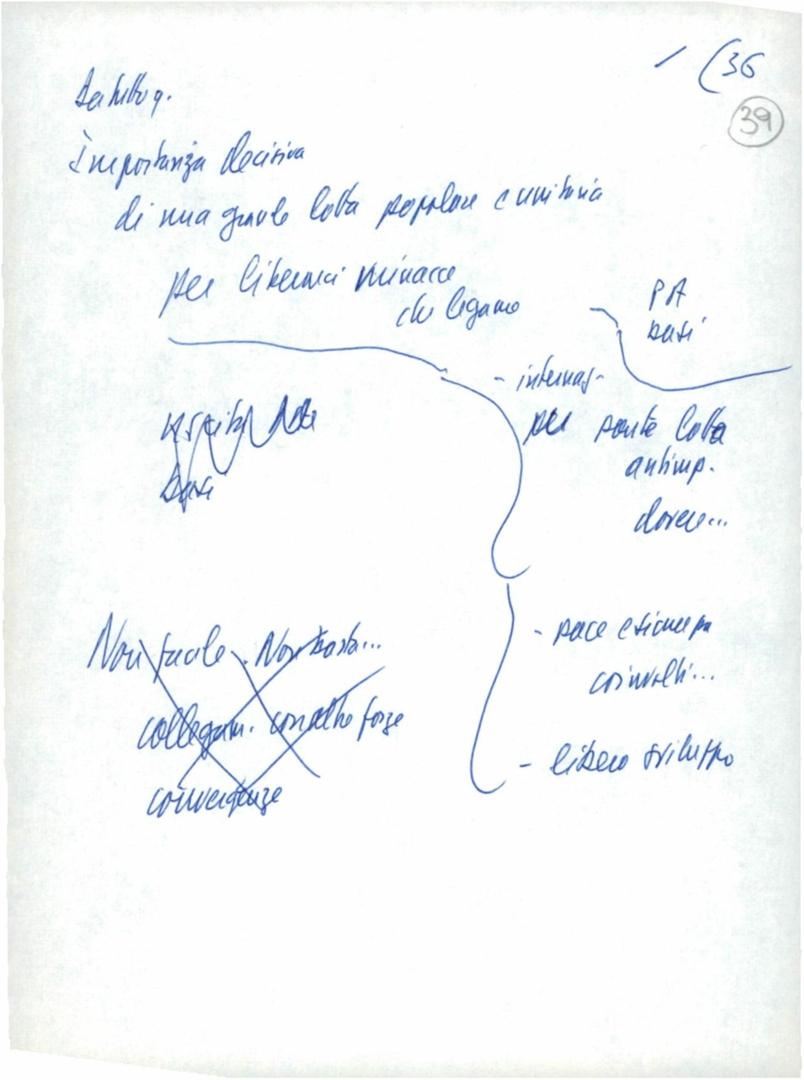 (36
39
Importanza decisiva
di una grande lotta popolare e unitaria
per liberarci minacce
che legano
PA
basi
- internaz-
per lotta
antimp.
dovere...
basi
- pace e sicurezza
coinvolti...
- libero sviluppo
Non facile. Non basta...
collegam. con altre forze
convergenze